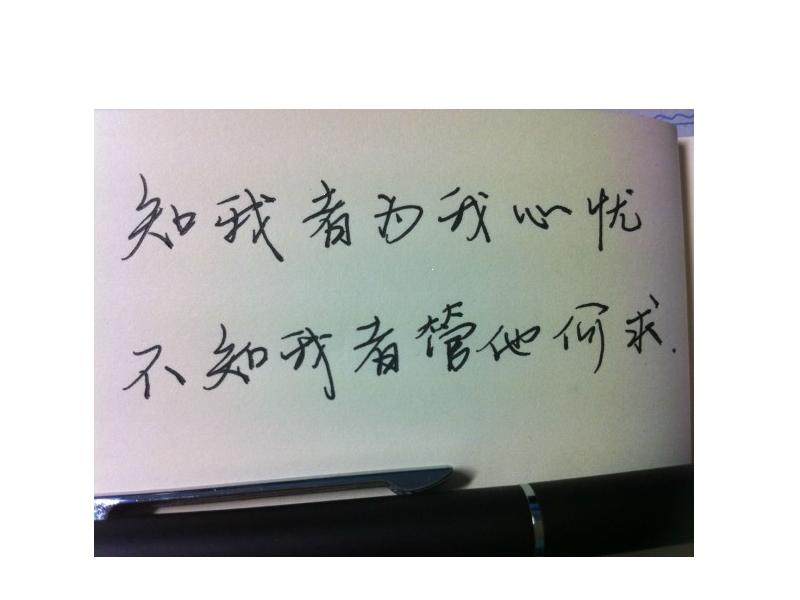 知我者为我心忧
不知我者管他何求.